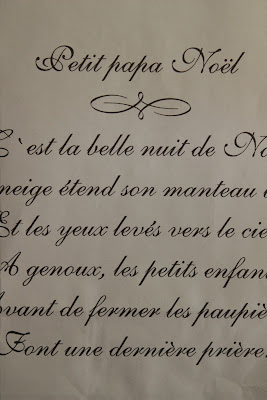 Petit papa Noël
C`est la belle nuit de No
neige étend son manteau
Et les yeux levés vers le cie
A genoux, les petits enfan
vant de fermer les paupiè
Font une dernière prière